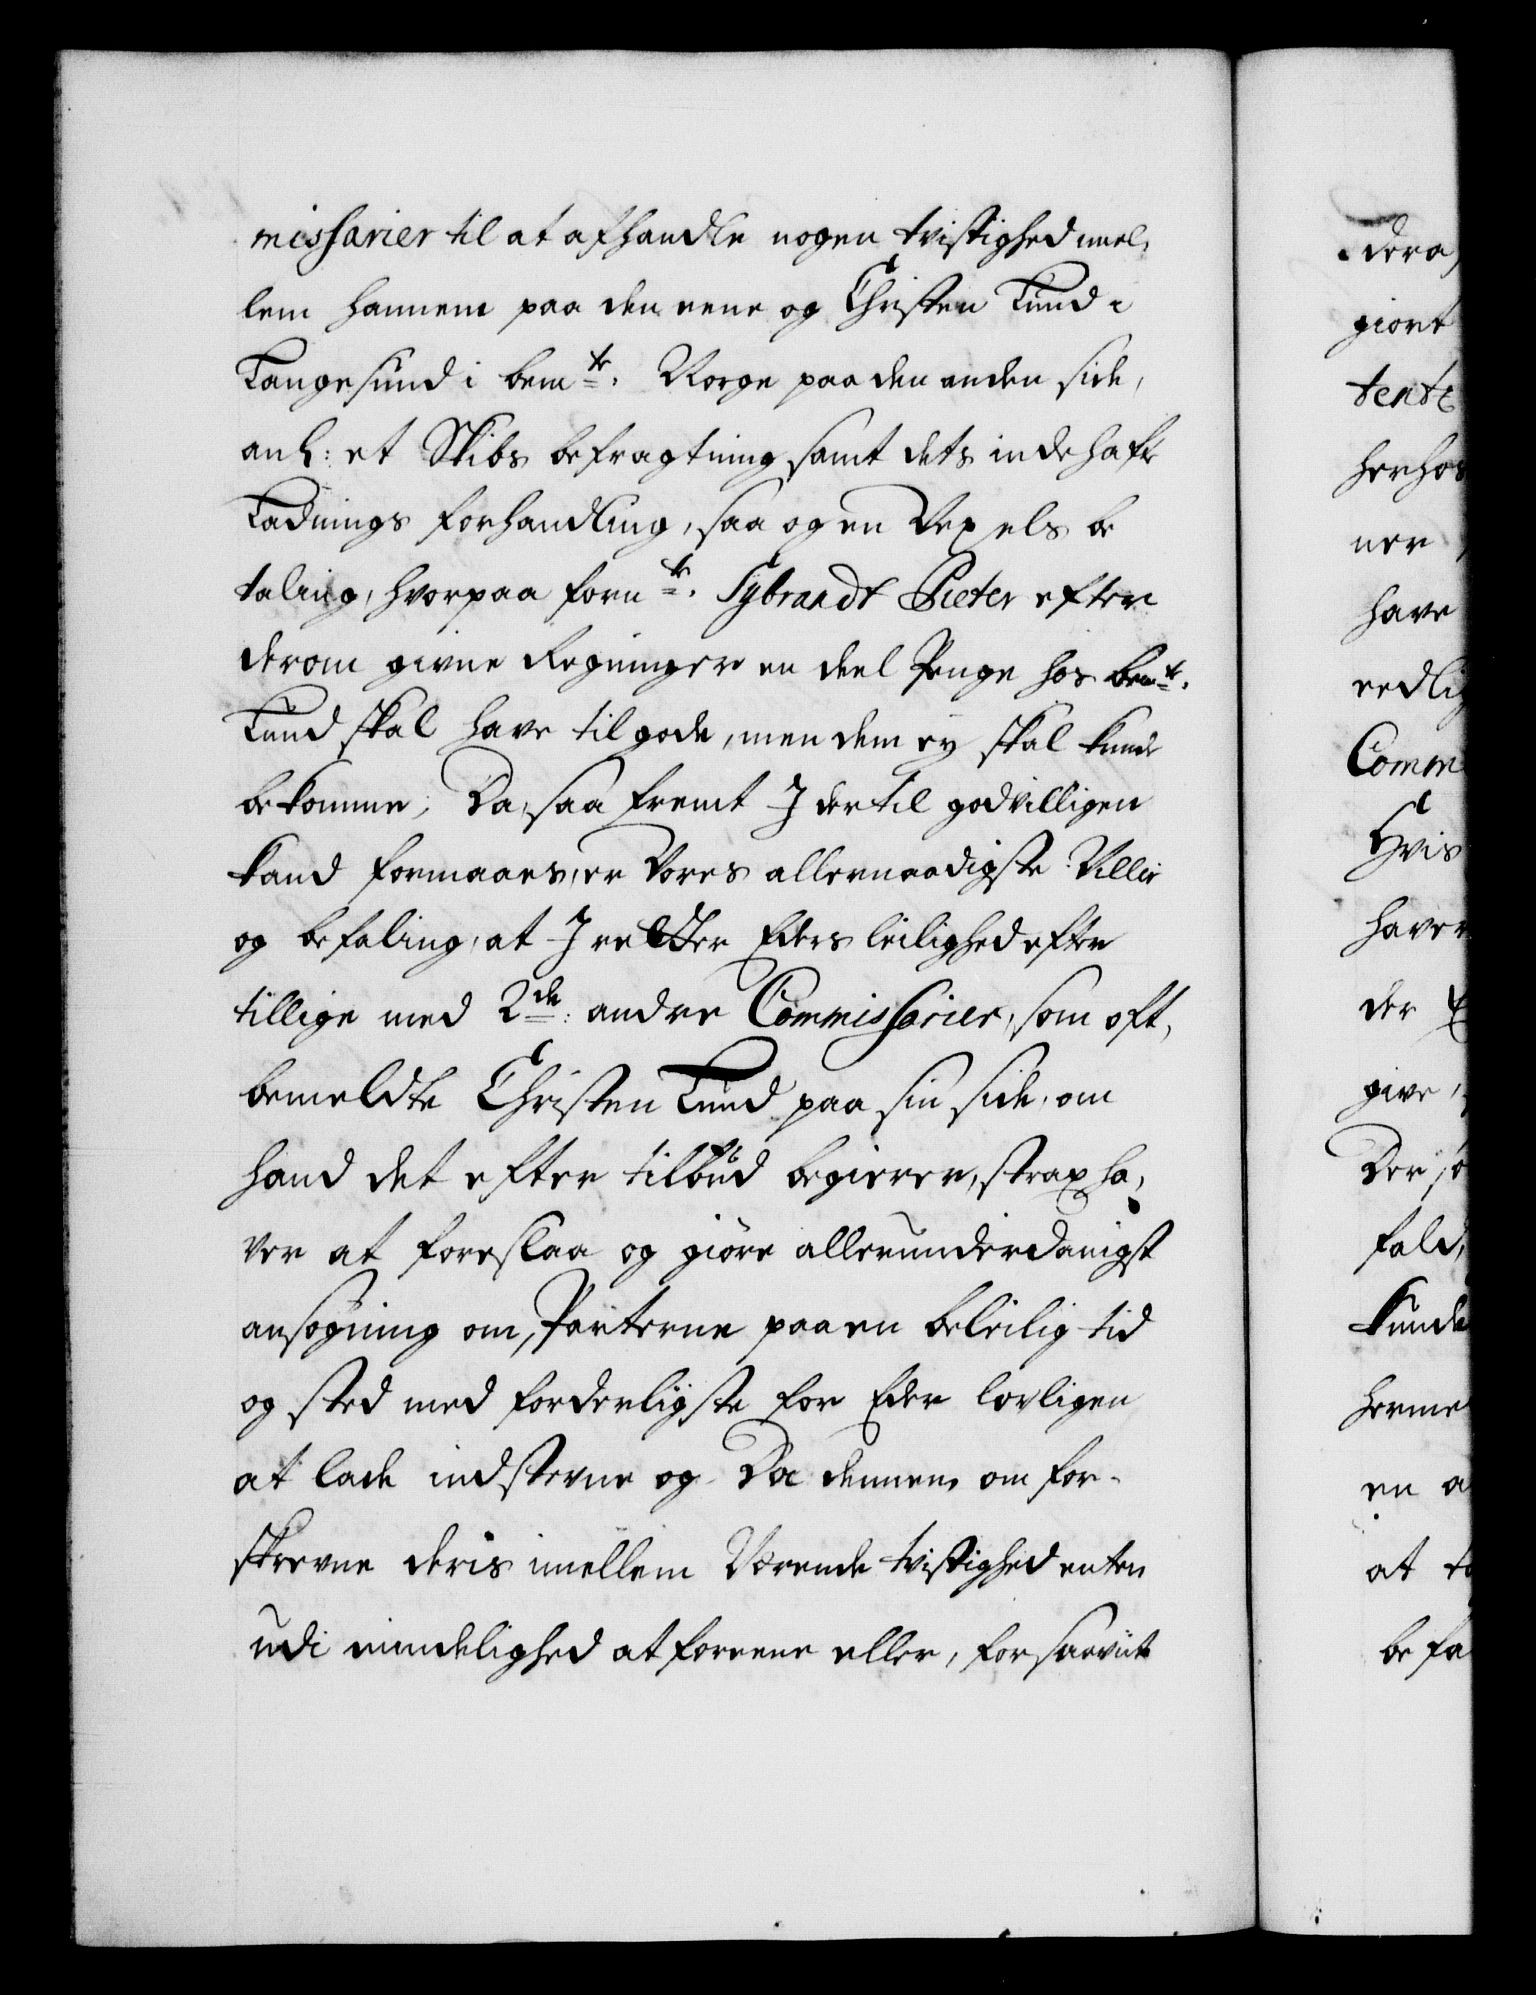 missarier til at afhandle nogen tvistighed imel,
lem hannem paa den eene og Christen Lund i
Langesund i bemte. Norge paa den anden side,
anl: et Skibs befragtning samt dets indehafte
Ladnings forhandling, saa og en Vexels be
taling, hvorpaa fornte. Sybrandt Pieter efter
derom givne Regninger en deel Penge hos bemte.
Lund skal have tilgode, men dem ey skal kunde
bekomme; Da, saa fremt I dertil godvilligen
kand formaaes, er Vores allernaadigste Villie
og befaling, at I retter Eders leilighed efter
tillige med 2de: andre Commissarier, som oft,
bemeldte Christen Lund paa sin side, om
hand det efter tilbud begierer, strax ha,
ver at foreslaa og giøre allerunderdanigst
ansøgning om, Parterne paa en beleilig tid
og sted med forderligste for Eder lovligen
at lade indstevne og Da dennem om for-
skrevne deris imellem Værende tvistighed enten
udi mindelighed at foreene eller, forsaavit
dera
giort
tente
herhos
ner
have
eedlig
Comm
Hvis
haver
der E
give,
Der sø
fald,
kunde
herme
en a
at t
befa